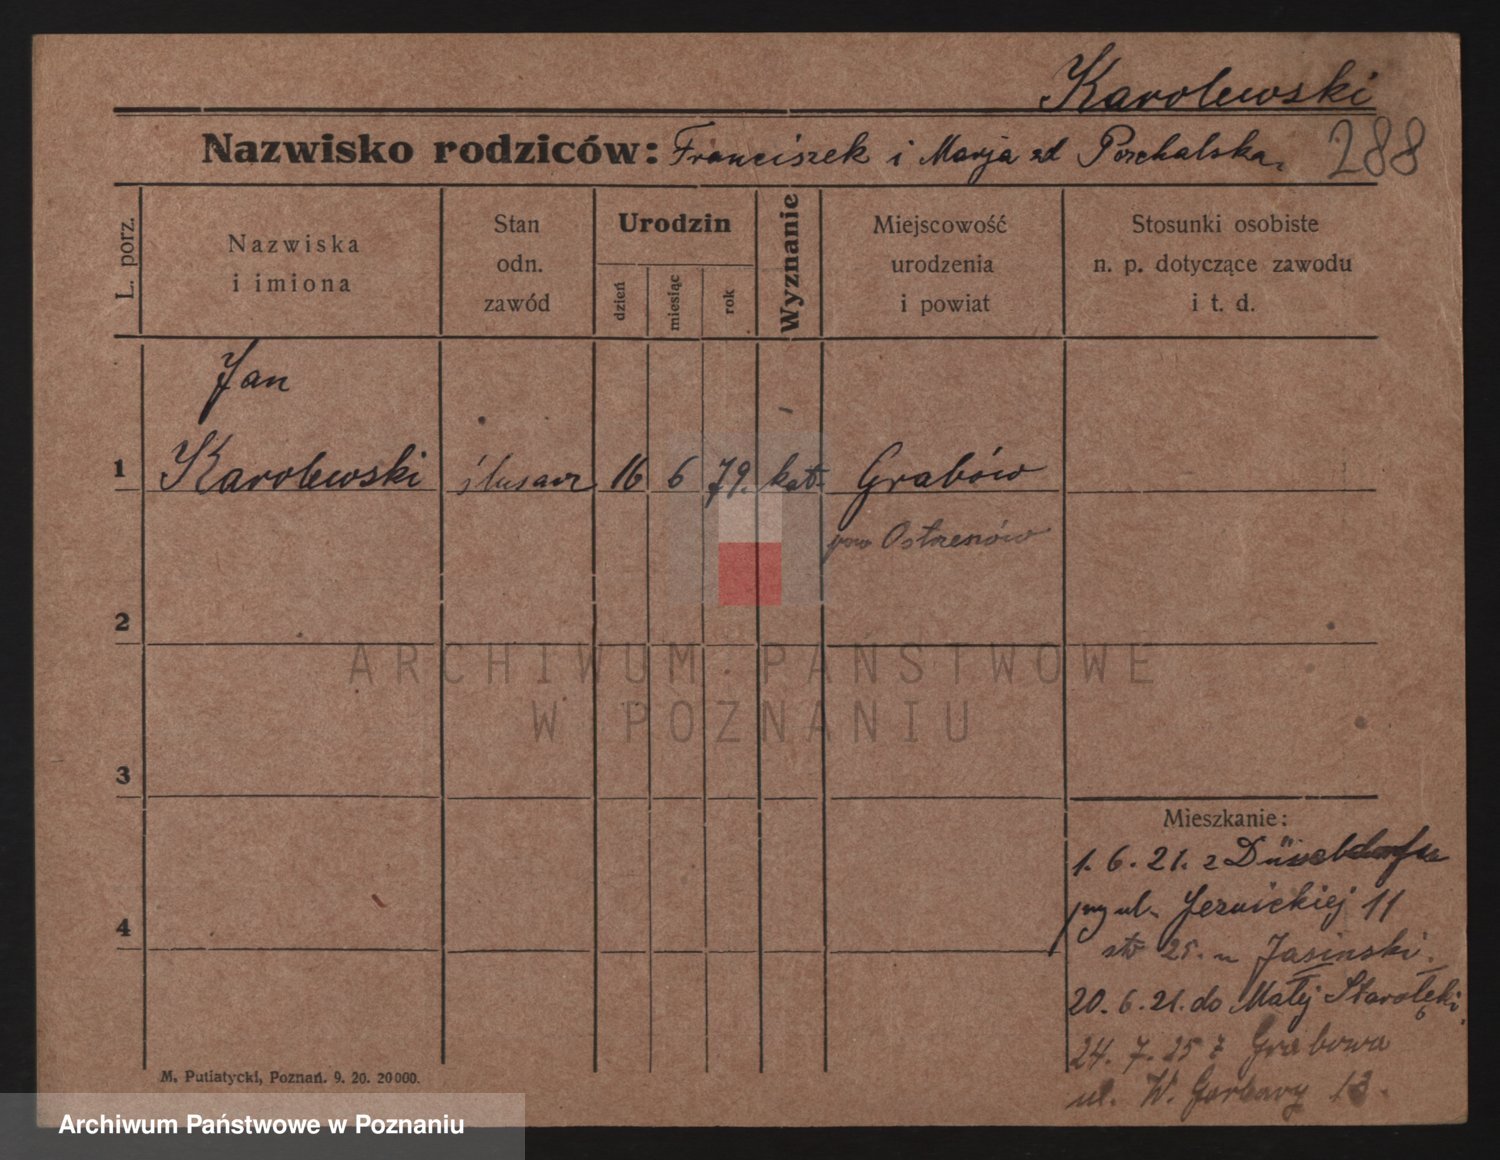 Karolewski
Nazwisko rodziców: Franciszek i Marja zd Porchalska.
288
L. porz.
Nazwiska
i imiona
Stan
odn.
zawód
Urodzin
dzień
miesiąc
rok
Wyznanie
Miejscowość
urodzenia
i powiat
Stosunki osobiste
n. p. dotyczące zawodu
i t. d.
Jan
1 Karolewski ślusarz 16 6 79. kat. Grabów
pow Ostrzesów
2
ARCHIWUM PAŃSTWOWE
W POZNANIU
3
Mieszkanie:
1. 6. 21. z
przy ul. 11
25. u Jasinski.
4
20. 6. 21. do Małej Starołęki
24. 7. 25 z Grabowa
ul. W. Garbary 13.
M. Putiatycki, Poznań. 9. 20. 20000.
Archiwum Państwowe w Poznaniu